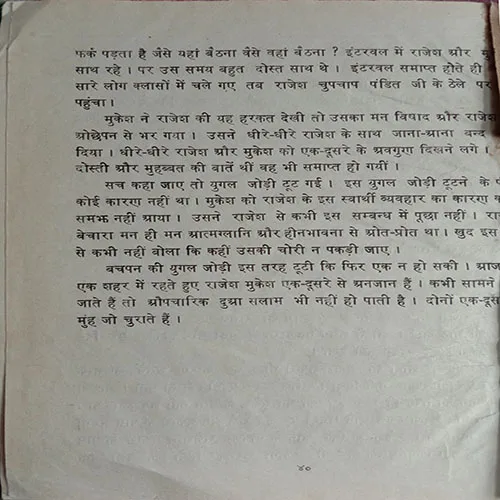 फर्क पड़ता है जैसे यहां बैठना वैसे वहां बैठना ? इंटरवल में राजेश और
साथ रहे । पर उस समय बहुत दोस्त साथ थे । इंटरवल समाप्त होते ही
सारे लोग क्लासों में चले गए तब राजेश चुपचाप पंडित जी के ठेले पर
पहुंचा ।
मुकेश ने राजेश की यह हरकत देखी तो उसका मन विषाद और राजेश
ओछेपन से भर गया । उसने धीरे-धीरे राजेश के साथ जाना-आना बन्द
दिया । धीरे-धीरे राजेश और मुकेश को एक-दूसरे के अवगुण दिखने लगे ।
दोस्ती और मुहब्बत की बातें थीं वह भी समाप्त हो गयीं ।
सच कहा जाए तो युगल जोड़ी टूट गई । इस युगल जोड़ी टूटने के
कोई कारण नहीं था । मुकेश को राजेश के इस स्वार्थी व्यवहार का कारण
समझ नहीं आया । उसने राजेश से कभी इस सम्बन्ध में पूछा नहीं ।
बेचारा मन ही मन आत्मग्लानि और हीनभावना से ओत-प्रोत था । खुद इस
से कभी नहीं बोला कि कहीं उसकी चोरी न पकड़ी जाए ।
बचपन की युगल जोड़ी इस तरह टूटी कि फिर एक न हो सकी ।
एक शहर में रहते हुए राजेश मुकेश एक-दूसरे से अनजान हैं । कभी सामने
जाते हैं तो औपचारिक दुआ सलाम भी नहीं हो पाती है । दोनों
मुंह जो चुराते हैं ।
४०